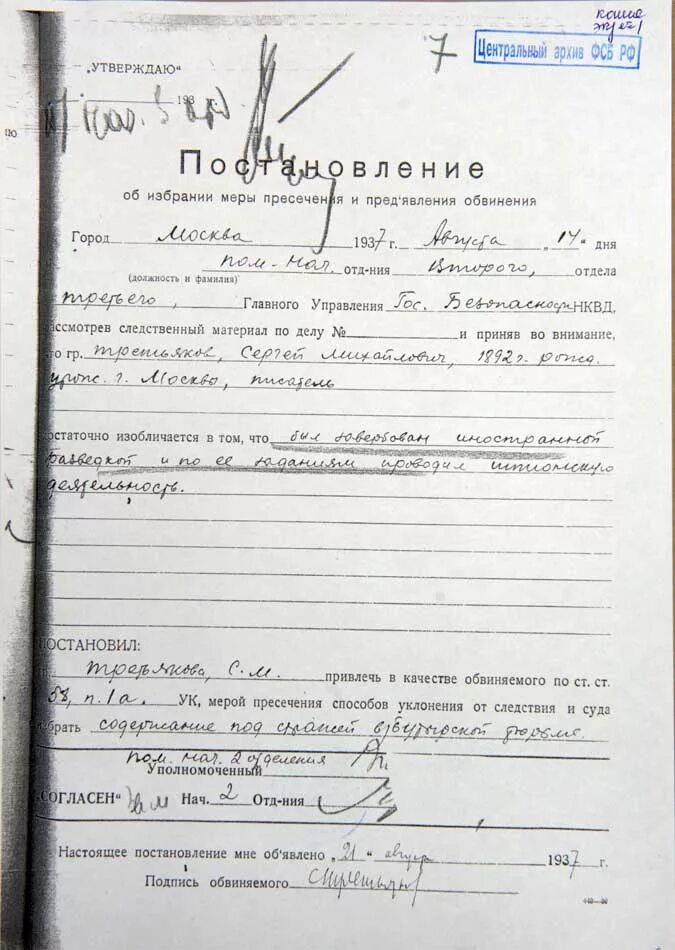 копия
7
Центральный архив ФСБ РФ
„УТВЕРЖДАЮ“
193 г.
Постановление
об избрании меры пресечения и пред'явления обвинения
Город Москва 1937 г. Августа „14“ дня
пом. нач. отд-ния Второго, отдела
(должность и фамилия)
третьего, Главного Управления Гос. Безопасности НКВД,
ассмотрев следственный материал по делу № и приняв во внимание,
то гр. Третьяков, Сергей Михайлович, 1892 г. рожд.
г. Москва, писатель
остаточно изобличается в том, что был завербован иностранной
разведкой и по ее заданиям проводил шпионскую
деятельность.
ОСТАНОВИЛ:
Третьякова, С. М. привлечь в качестве обвиняемого по ст. ст.
58, п. 1а. УК, мерой пресечения способов уклонения от следствия и суда
брать содержание под стражей в Бутырской тюрьме.
пом. нач. 2 отделения
Уполномоченный
„СОГЛАСЕН“ Зам Нач. 2 Отд-ния
Настоящее постановление мне об'явлено „21“ августа 1937 г.
Подпись обвиняемого СТретьяков